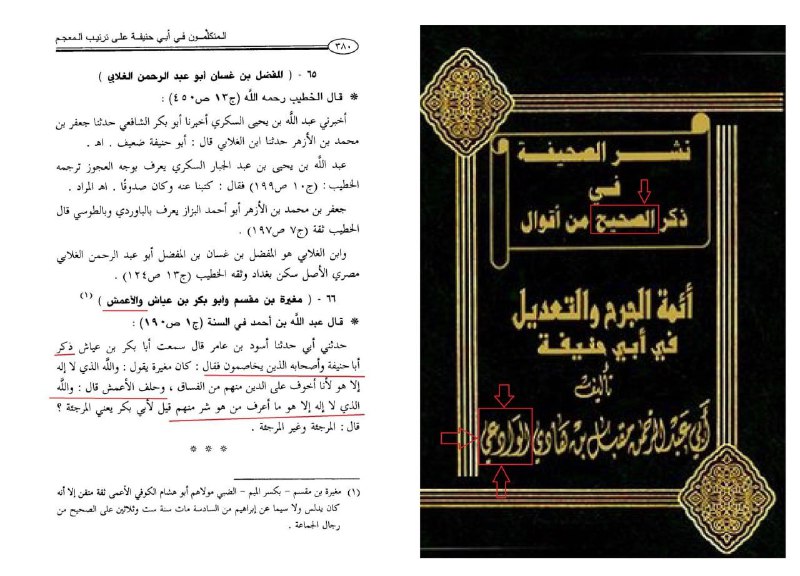 المتكلمون في أبي حنيفة على ترتيب المعجم
٣٨٠
٦٥ - ( المفضل بن غسان أبو عبد الرحمن الغلابي )
* قال الخطيب رحمه الله (ج١٣ ص٤٥٠) :
أخبرني عبد الله بن يحيى السكري أخبرنا أبو بكر الشافعي حدثنا جعفر بن
محمد بن الأزهر حدثنا ابن الغلابي قال : أبو حنيفة ضعيف . اهـ .
عبد الله بن يحيى بن عبد الجبار السكري يعرف بوجه العجوز ترجمه
الخطيب : (ج١٠ ص١٩٩) فقال : كتبنا عنه وكان صدوقًا . اهـ المراد .
جعفر بن محمد بن الأزهر أبو أحمد البزاز يعرف بالباوردي وبالطوسي قال
الخطيب ثقة (ج٧ ص١٩٧) .
وابن الغلابي هو المفضل بن غسان بن المفضل أبو عبد الرحمن الغلابي
مصري الأصل سكن بغداد وثقه الخطيب (ج١٣ ص١٢٤) .
٦٦ - ( مغيرة بن مقسم وأبو بكر بن عياش والأعمش ) (١)
* قال عبد الله بن أحمد في السنة (ج١ ص١٩٠) :
حدثني أبي حدثنا أسود بن عامر قال سمعت أبا بكر بن عياش ذكر
أبا حنيفة وأصحابه الذين يخاصمون فقال : كان مغيرة يقول : والله الذي لا إله
إلا هو لأنا أخوف على الدين منهم من الفساق ، وحلف الأعمش قال : والله
الذي لا إله إلا هو ما أعرف من هو شر منهم قيل لأبي بكر يعني المرجئة ؟
قال : المرجئة وغير المرجئة .
* * *
(١) مغيرة بن مقسم - بكسر الميم - الضبي مولاهم أبو هشام الكوفي الأعمى ثقة متقن إلا أنه
كان يدلس ولا سيما عن إبراهيم من السادسة مات سنة ست وثلاثين على الصحيح من
رجال الجماعة .
نشر الصحيفة
في
ذكر الصحيح من أقوال
أئمة الجرح والتعديل
في أبي حنيفة
تأليف
أبي عبد الرحمن مقبل بن هادي الوادعي